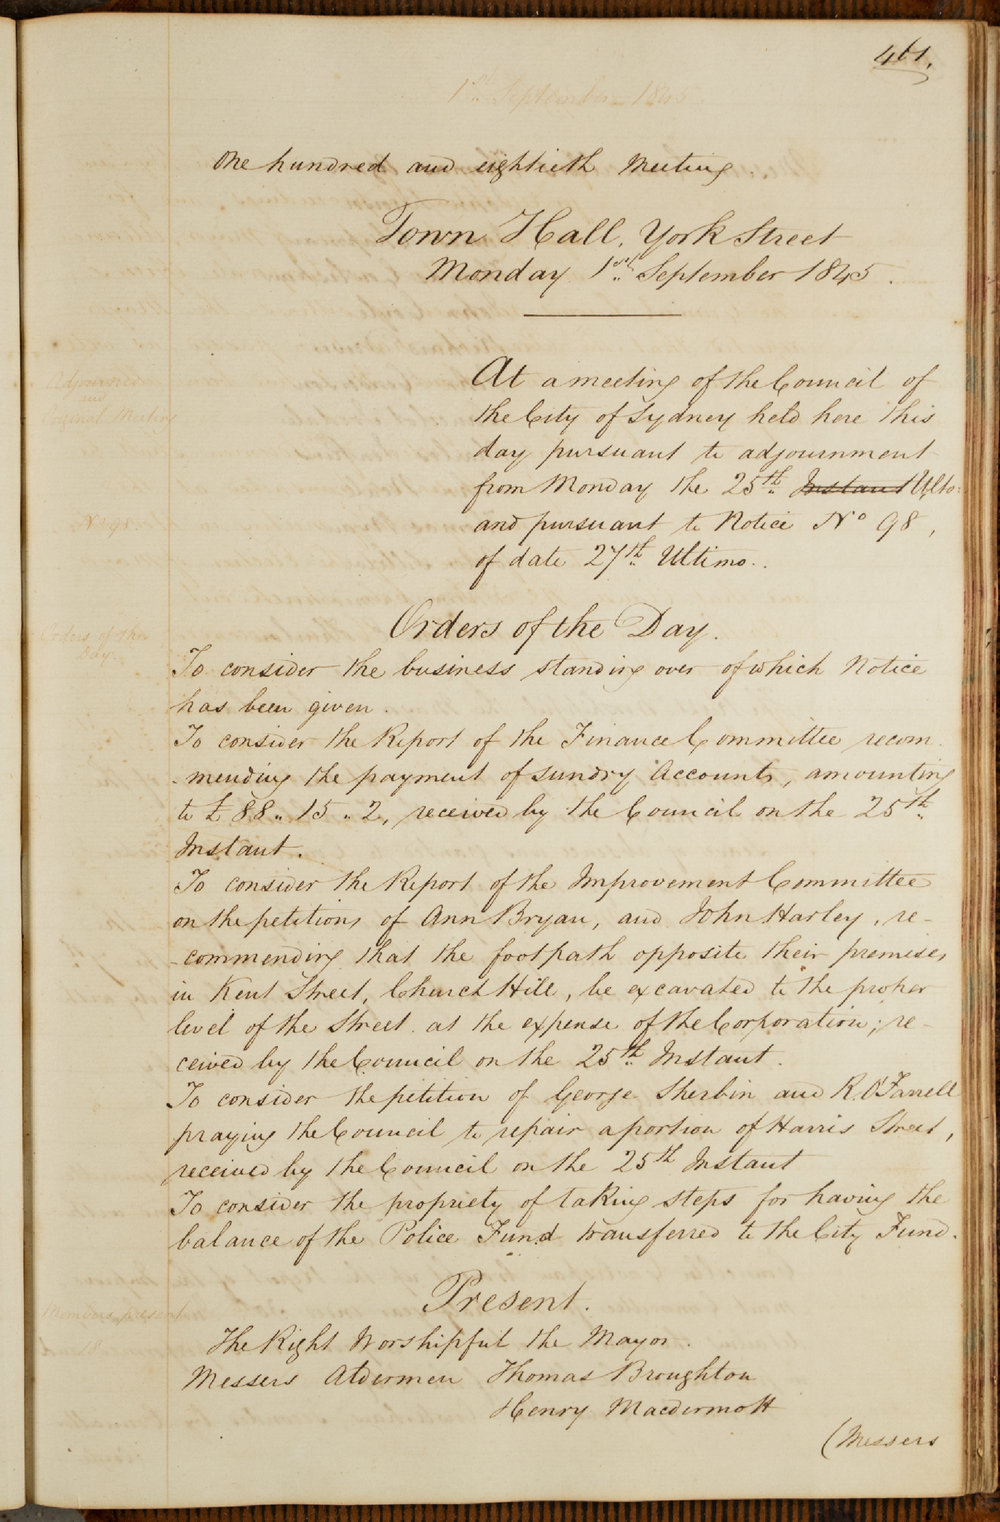 461.
1st September 1845.
One hundred and eightieth Meeting.
Town Hall, York Street
Monday 1st September 1845.
Adjourned
and
Special Meeting
At a meeting of the Council of
the City of Sydney held here this
day pursuant to adjournment
from Monday the 25th Instant Ulto:
No 98.
and pursuant to Notice No 98,
of date 27th Ultimo.
Orders of the Day.
Orders of the
Day.
To consider the business standing over of which Notice
has been given.
To consider the Report of the Finance Committee recom
-mending the payment of sundry Accounts, amounting
to £88.. 15.. 2, received by the Council on the 25th
Instant.
To consider the Report of the Improvement Committee
on the petitions of Ann Bryan, and John Harley, re-
-commending that the footpath opposite their premises
in Kent Street, Church Hill, be excavated to the proper
level of the Street at the expense of the Corporation; re-
ceived by the Council on the 25th Instant.
To consider the petition of George Sherbin and R. O'Farrell
praying the Council to repair a portion of Harris Street,
received by the Council on the 25th Instant
To consider the propriety of taking steps for having the
balance of the Police Fund transferred to the City Fund.
Present.
Members present
The Right Worshipful the Mayor.
Messers Aldermen Thomas Broughton
Henry Macdermott
(Messers